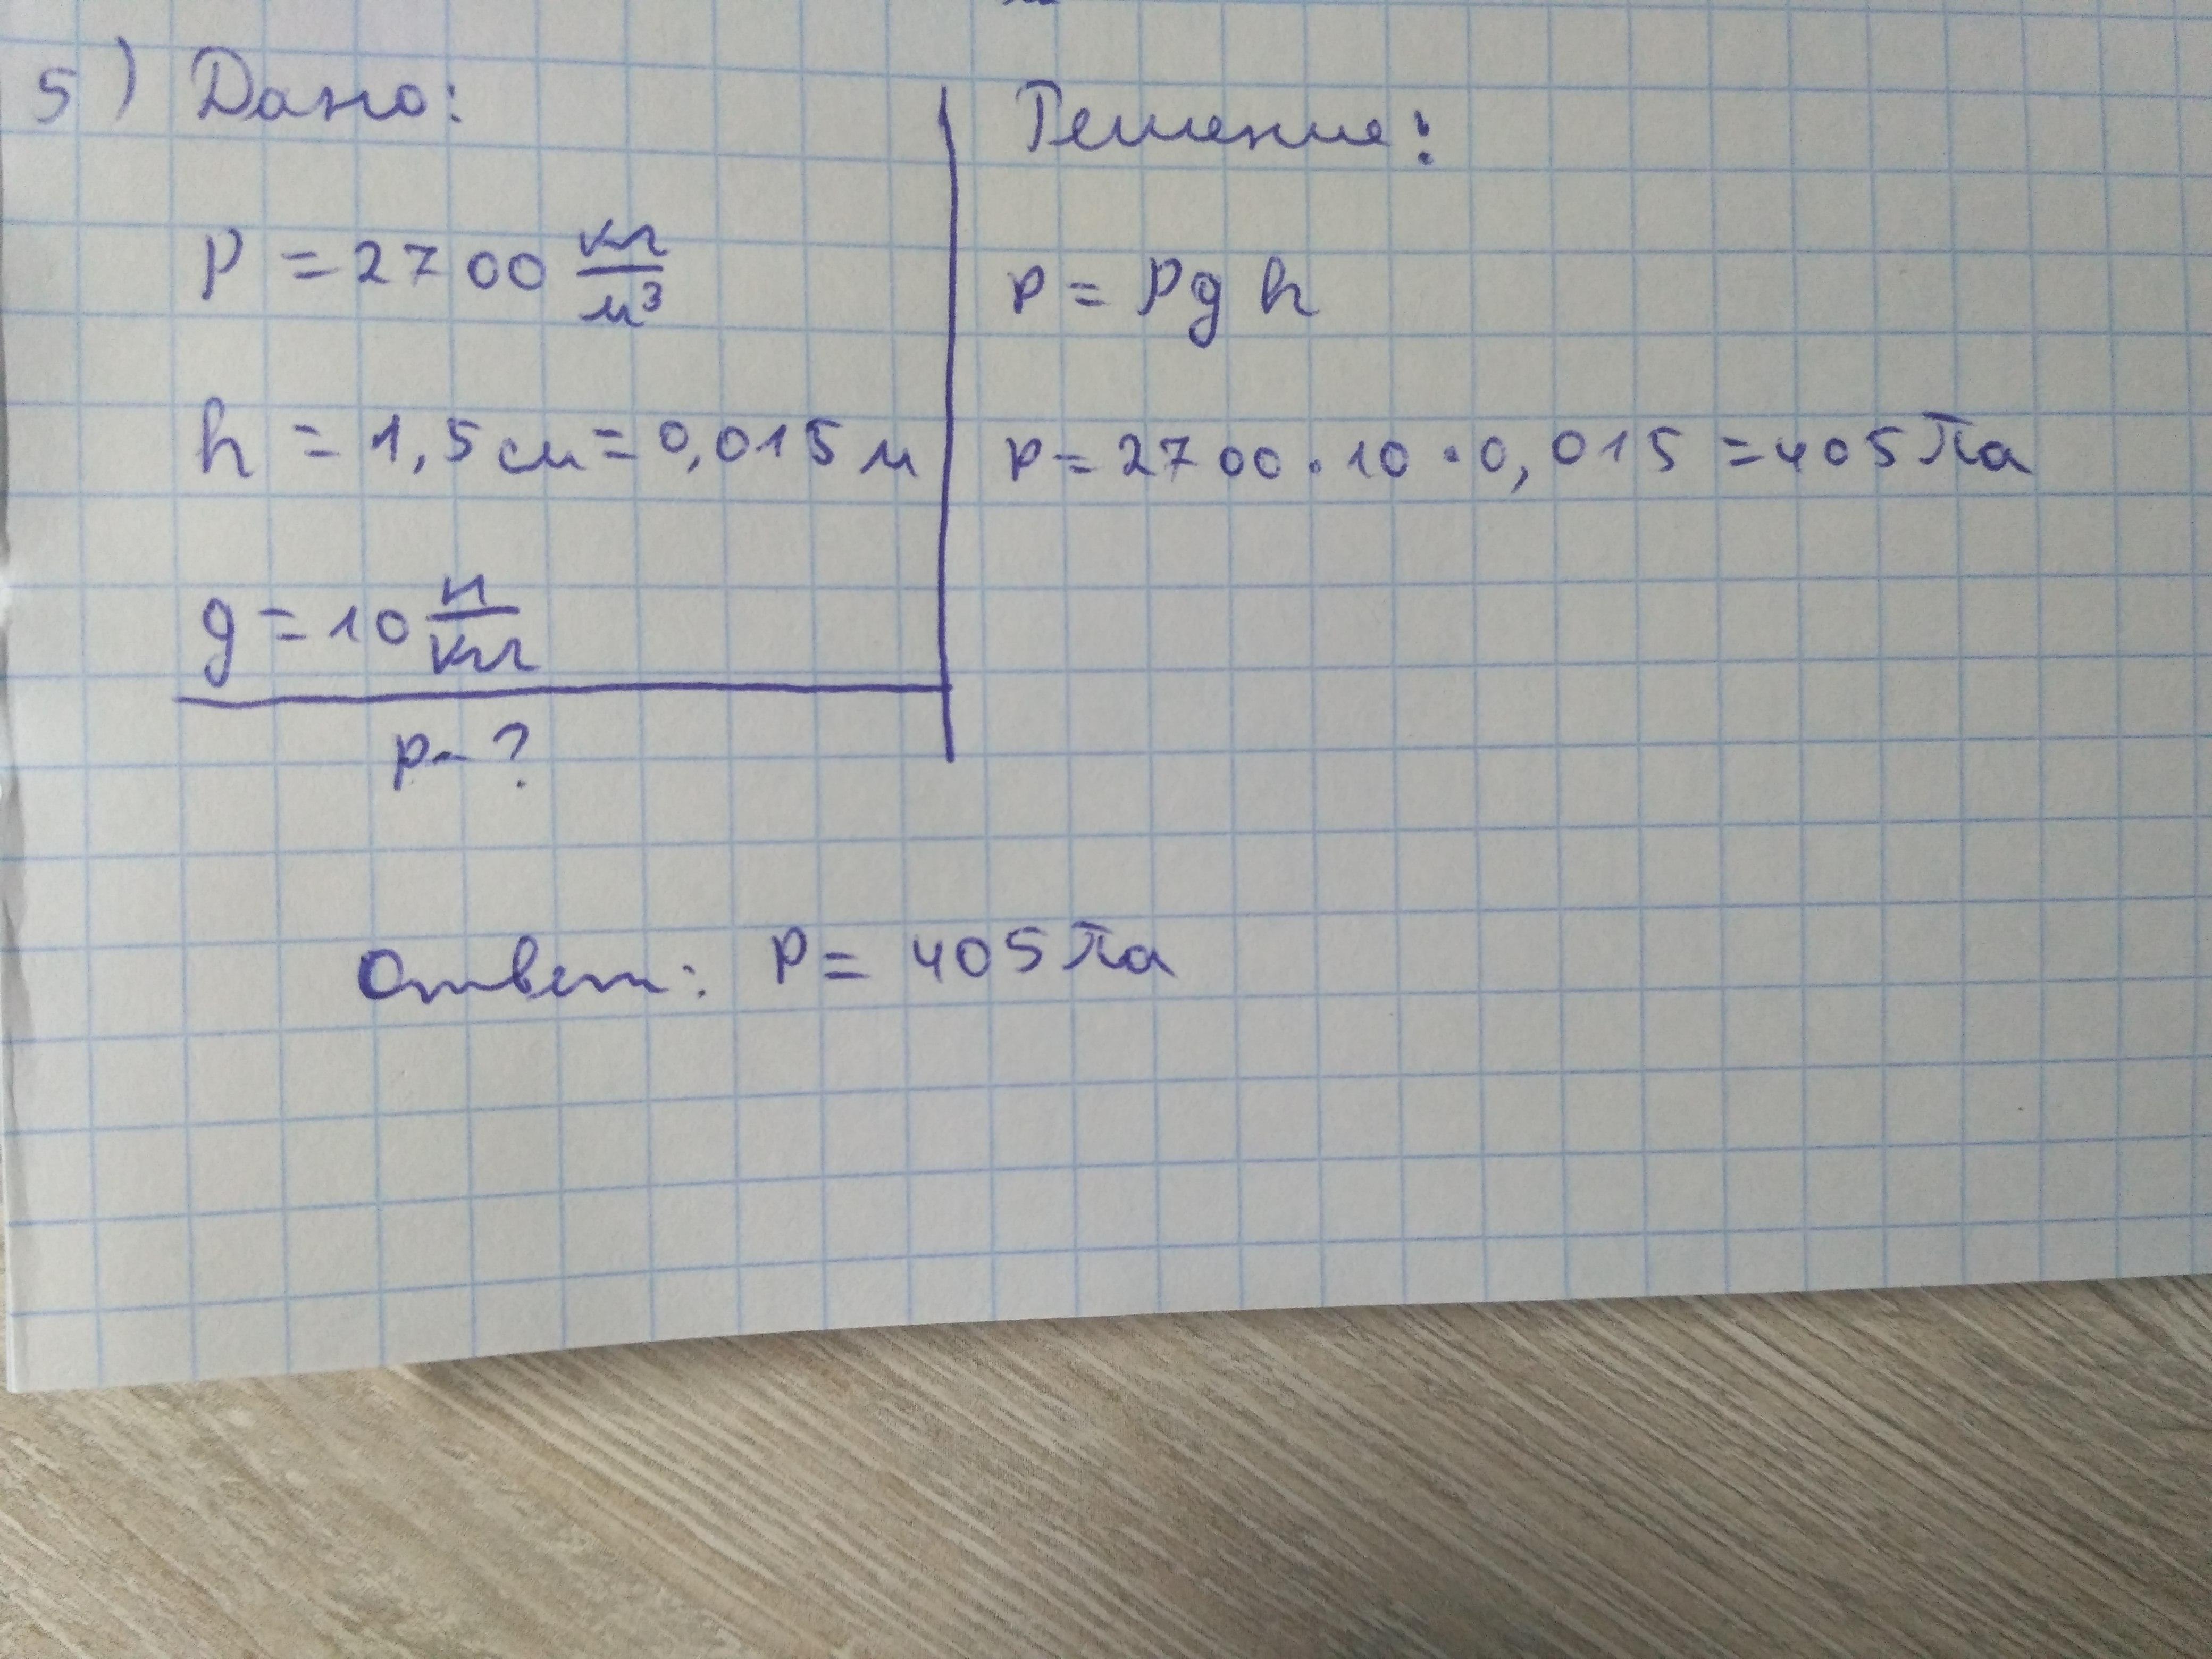 5) Дано:
ρ = 2700 кг/м³
h = 1,5 см = 0,015 м
g = 10 н/кг
p - ?
Решение:
p = ρgh
p = 2700 · 10 · 0,015 = 405 Па
Ответ: p = 405 Па